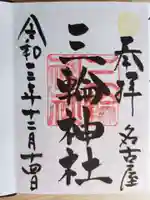 奉拝
名古屋
三輪神社
令和三年十二月十四日